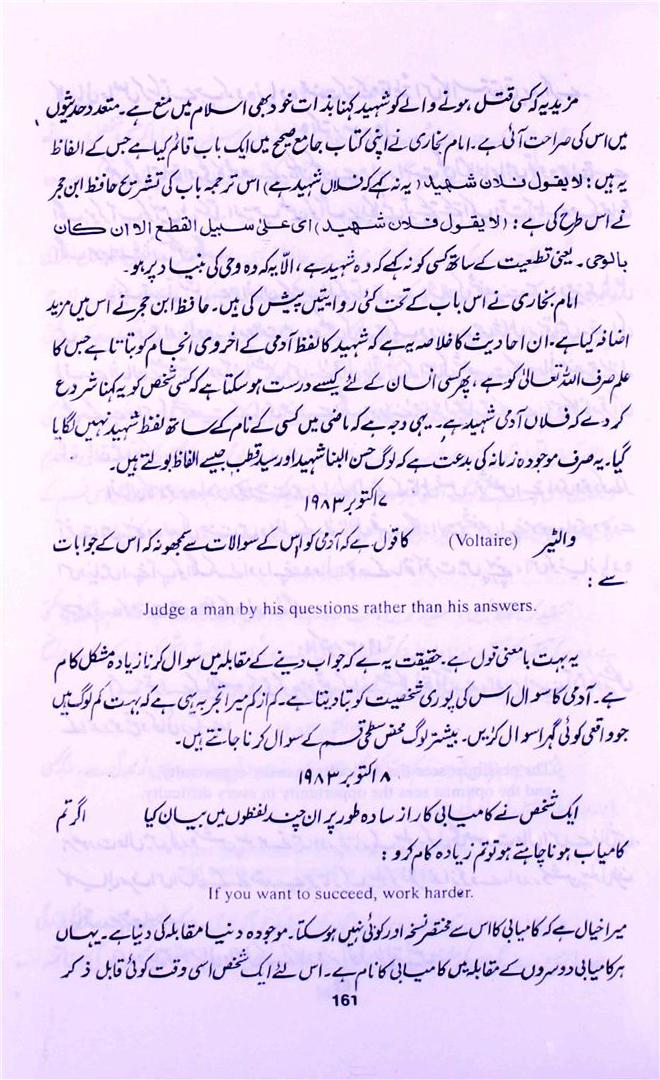 مزید یہ کہ کسی قتل ہونے والے کو شہید کہنا بذات خود بھی اسلام میں منع ہے۔ متعدد حدیثوں
میں اس کی صراحت آئی ہے۔ امام بخاری نے اپنی کتاب جامع صحیح میں ایک باب قائم کیا ہے جس کے الفاظ
یہ ہیں: لا یقول فلان شهید (یہ نہ کہے کہ فلاں شہید ہے) اس ترجمۂ باب کی تشریح حافظ ابن حجر
نے اس طرح کی ہے: (لا یقول فلان شهید) ای علیٰ سبیل القطع الا ان کان
بالوحی۔ یعنی قطعیت کے ساتھ کسی کو نہ کہے کہ وہ شہید ہے، الّا یہ کہ وہ وحی کی بنیاد پر ہو۔
امام بخاری نے اس باب کے تحت کئی روایتیں پیش کی ہیں۔ حافظ ابن حجر نے اس میں مزید
اضافہ کیا ہے۔ ان احادیث کا خلاصہ یہ ہے کہ شہید کا لفظ آدمی کے اخروی انجام کو بتاتا ہے جس کا
علم صرف اللہ تعالیٰ کو ہے، پھر کسی انسان کے لئے کیسے درست ہو سکتا ہے کہ کسی شخص کو یہ کہنا شروع
کر دے کہ فلاں آدمی شہید ہے۔ یہی وجہ ہے کہ ماضی میں کسی کے نام کے ساتھ لفظ شہید نہیں لگایا
گیا۔ یہ صرف موجودہ زمانہ کی بدعت ہے کہ لوگ حسن البنا شہید اور سید قطب جیسے الفاظ بولتے ہیں۔
۷ اکتوبر ۱۹۸۳
والٹیر (Voltaire) کا قول ہے کہ آدمی کو اس کے سوالات سے سمجھو نہ کہ اس کے جوابات
سے:
Judge a man by his questions rather than his answers.
یہ بہت بامعنی قول ہے۔ حقیقت یہ ہے کہ جواب دینے کے مقابلہ میں سوال کرنا زیادہ مشکل کام
ہے۔ آدمی کا سوال اس کی پوری شخصیت کو بتا دیتا ہے۔ کم از کم میرا تجربہ یہی ہے کہ بہت کم لوگ ہیں
جو واقعی کوئی گہرا سوال کریں۔ بیشتر لوگ محض سطحی قسم کے سوال کرنا جانتے ہیں۔
۸ اکتوبر ۱۹۸۳
ایک شخص نے کامیابی کا راز سادہ طور پر ان چند لفظوں میں بیان کیا اگر تم
کامیاب ہونا چاہتے ہو تو تم زیادہ کام کرو:
If you want to succeed, work harder.
میرا خیال ہے کہ کامیابی کا اس سے مختصر نسخہ اور کوئی نہیں ہو سکتا۔ موجودہ دنیا مقابلہ کی دنیا ہے۔ یہاں
ہر کامیابی دوسروں کے مقابلہ میں کامیابی کا نام ہے۔ اس لئے ایک شخص اسی وقت کوئی قابل ذکر
161